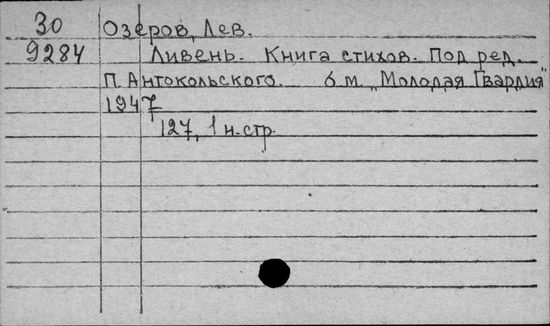 30 Озеров, Лев.
9284 Ливень. Книга стихов. Под ред.
П. Антокольского. б.м. „Молодая Гвардия"
1947
127, 1 н.стр.